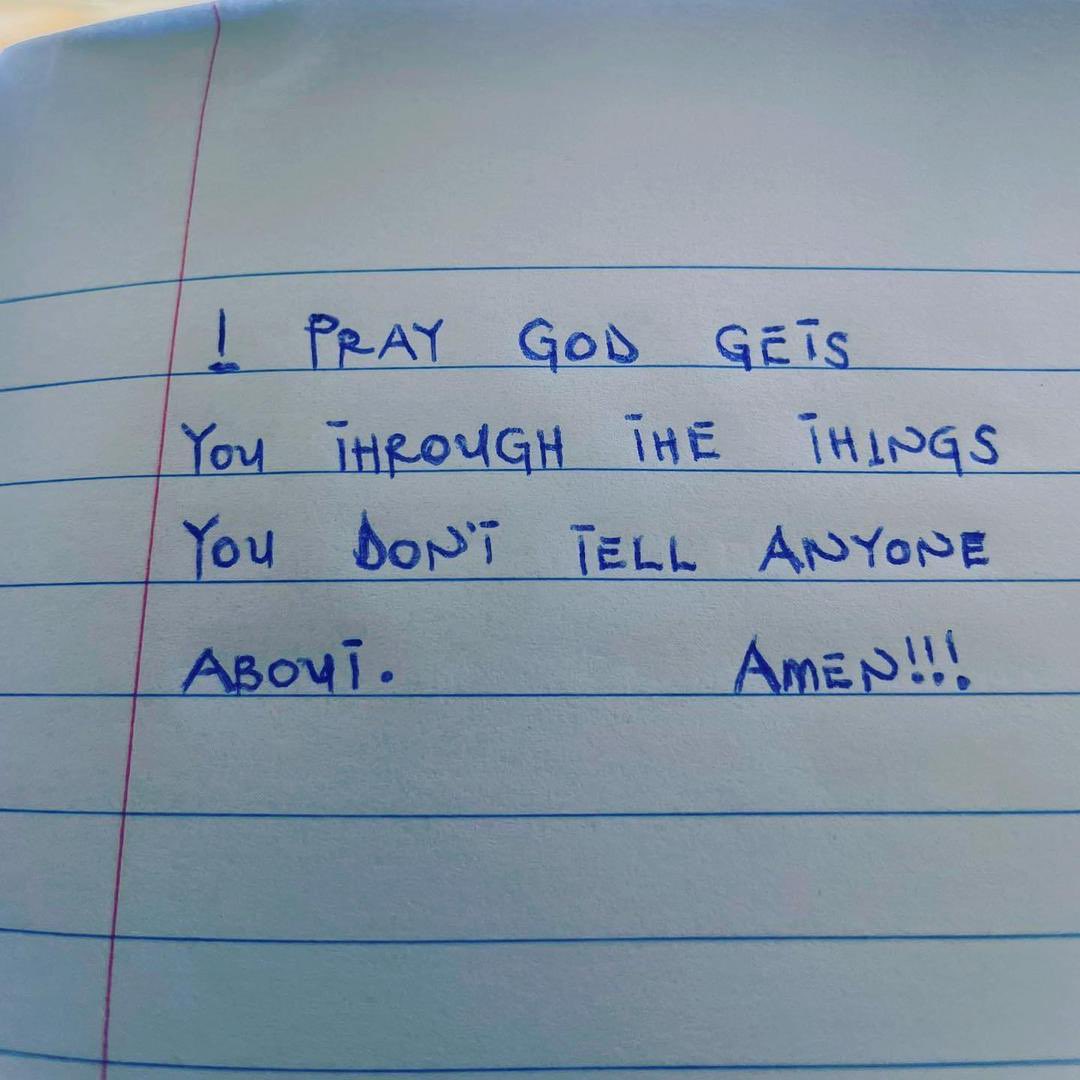 I PRAY GOD GETS
YOU THROUGH THE THINGS
YOU DON'T TELL ANYONE
ABOUT. AMEN!!!